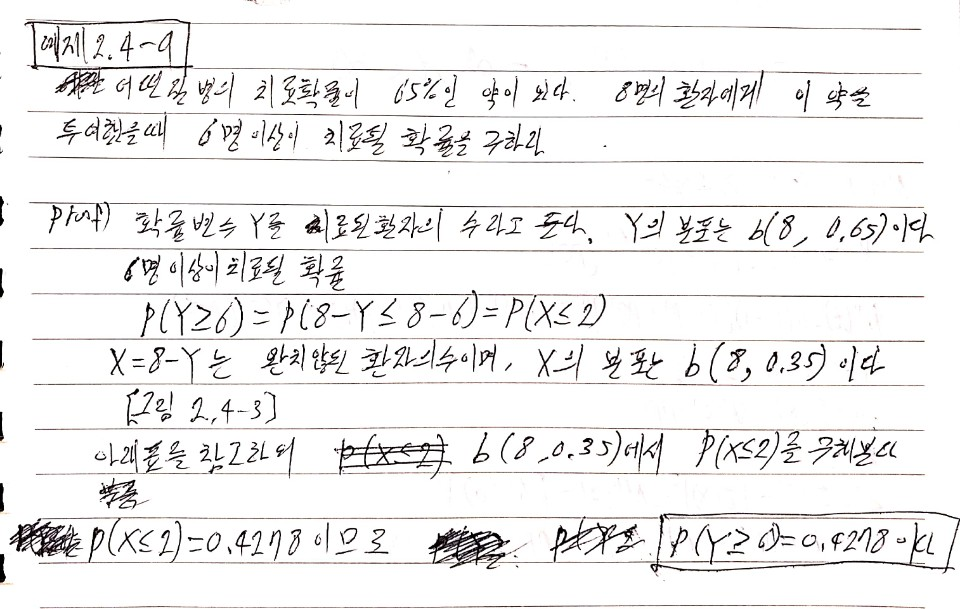 예제 2.4-9
어떤 질병의 치료확률이 65%인 약이 있다. 8명의 환자에게 이 약을
투여했을때 6명 이상이 치료될 확률을 구하라
proof) 확률변수 Y를 치료된환자의 수라고 둔다. Y의 분포는 b(8, 0.65)이다
6명 이상이 치료될 확률
P(Y≥6) = P(8-Y ≤ 8-6) = P(X≤2)
X=8-Y는 완치않된 환자의수이며, X의 분포는 b(8, 0.35) 이다
[그림 2.4-3]
아래표를 참고하여 P(X≤2) b(8,0.35)에서 P(X≤2)를 구해본다
P(X≤2)=0.4278이므로 P(Y≥6)=0.4278이다